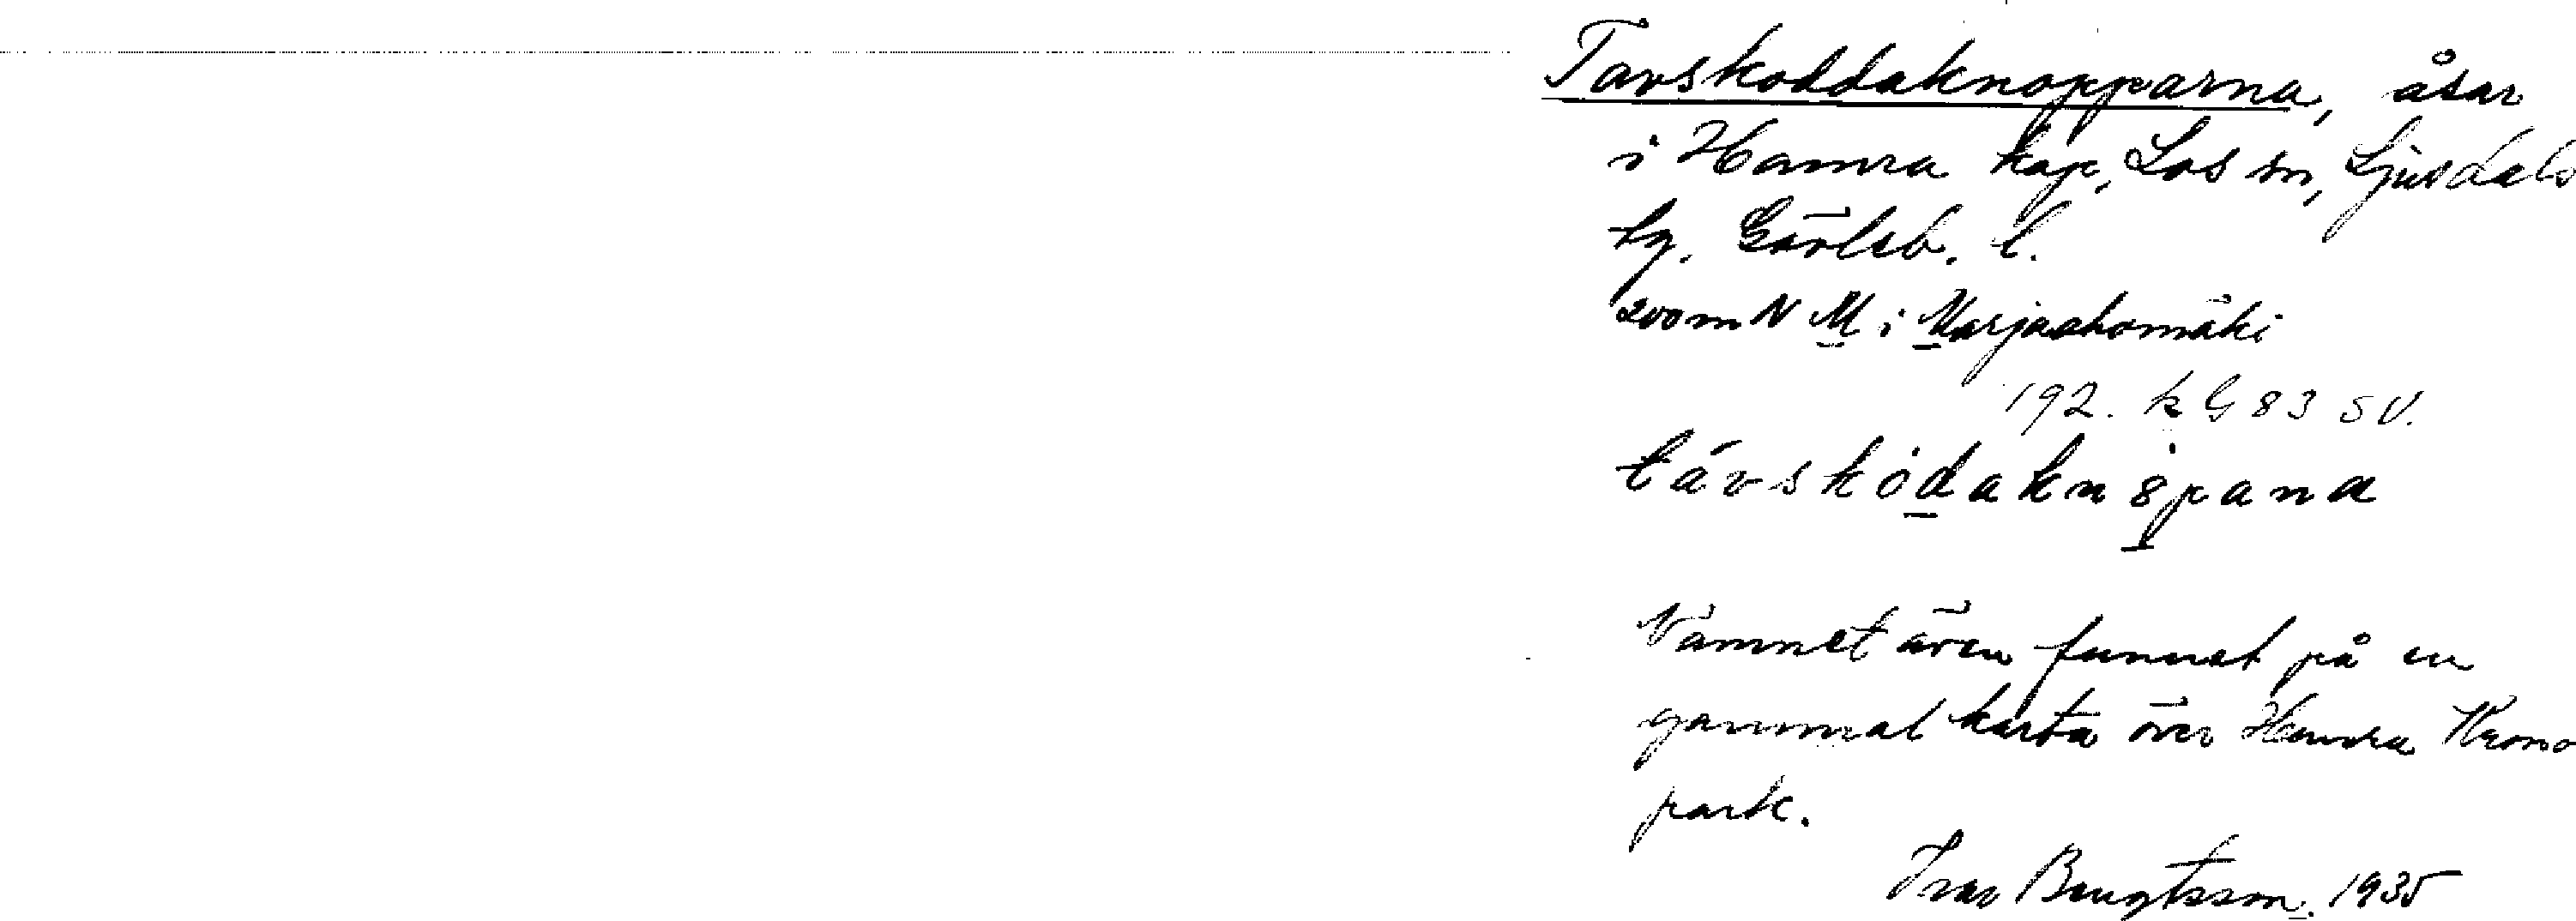 Tavskoddaknopparna, åsar
i Hamra kap, Los sn, Ljusdals
tg. Gävleb. l.
200 m N M i Marjaahomäki
192. k G 83 SV.
távskòdaknòpana
Namnet även funnet på en
gammal karta över Hamra Krono
park.
Ivar Bengtsson. 1935